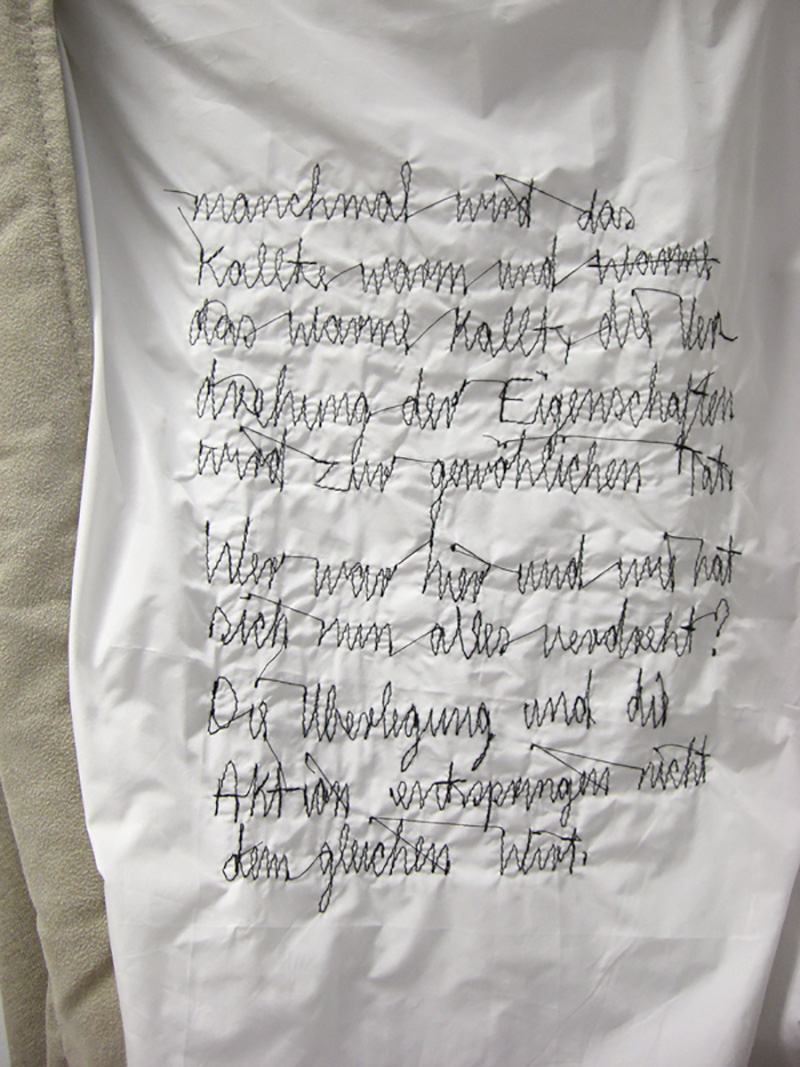 manchmal wird das
Kallte warm und warme
das warme Kallt, die Ver
drehung der Eigenschaften
wird zur gewöhlichen Tat.
Wer war hier und mit hat
sich nun alles verdreht?
Die Überlegung und die
Aktion entspringen nicht
dem gleichen Wirt.